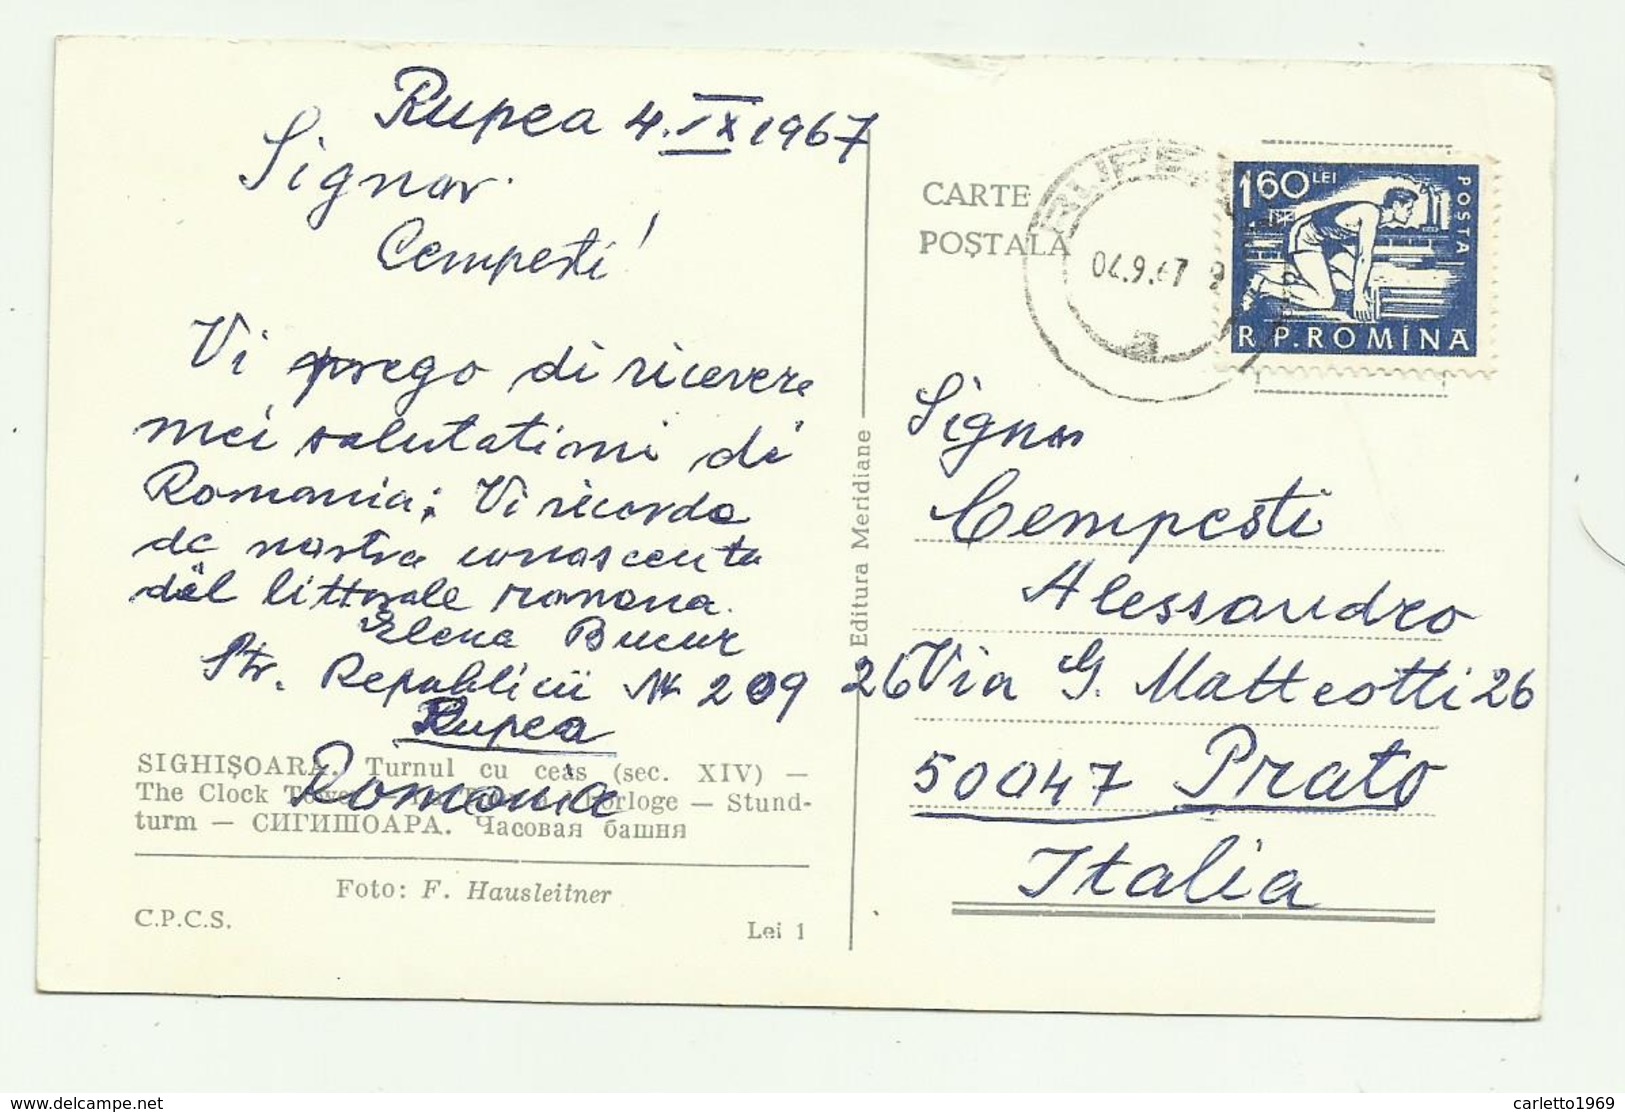 Rupea 4. IX 1967
Signor
Cempesti!
Vi prego di ricevere
mei salutationi di
Romania; Vi ricorda
de nostra conoscenta
del littorale romana.
Elena Bucur
Str. Republicii Nr 209
Rupea
Romania
SIGHIȘOARA. Turnul cu ceas (sec. XIV) —
The Clock Tower — La Tour d'Horloge — Stund-
turm — СИГИШОАРА. Часовая башня
Foto: F. Hausleitner
C.P.C.S.
Lei 1
Editura Meridiane
CARTE
POȘTALĂ
RUPEA
04.9.67
a
1 60 LEI
POȘTA
R.P.ROMÎNA
Signor
Cempesti
Alessandro
26 Via G. Matteotti 26
50047 Prato
Italia
delcampe.net
carletto1969